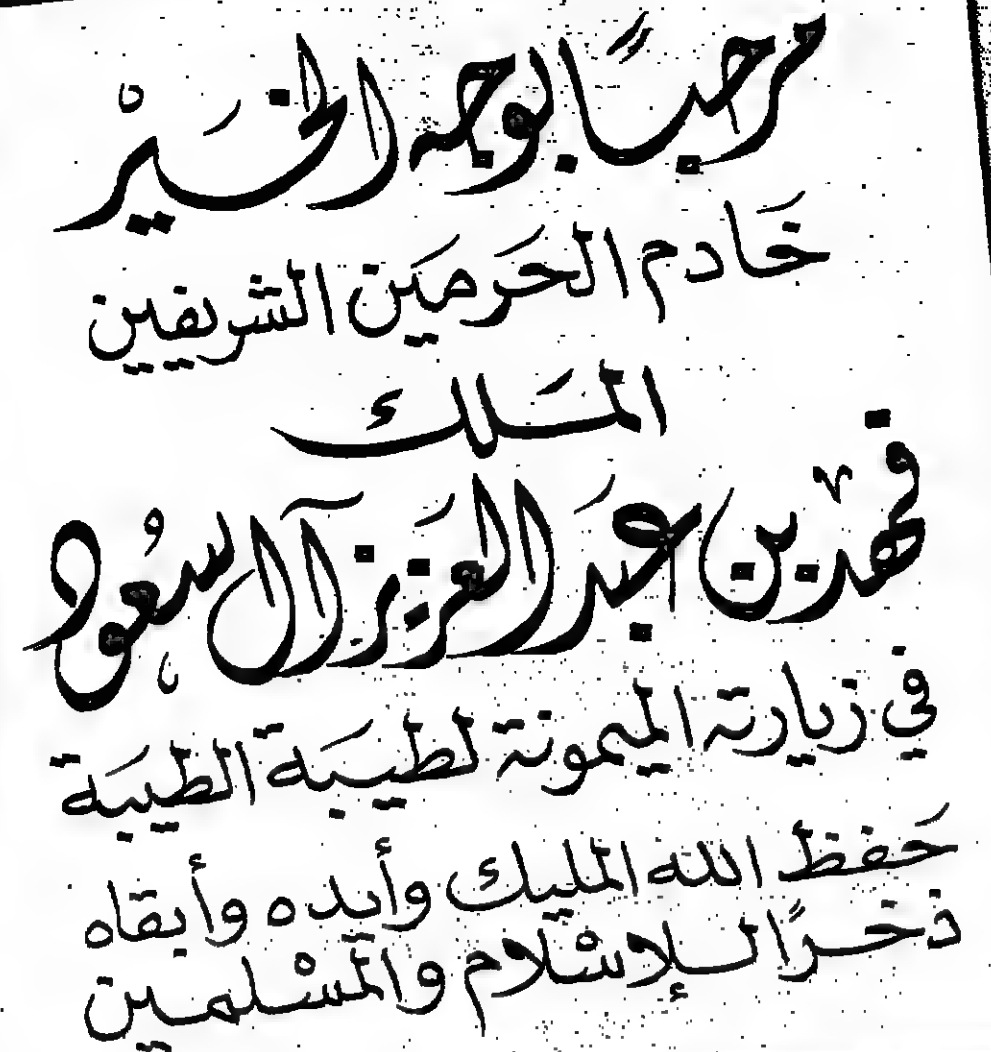 مرحبًا بوجه الخَيْر
خَادم الحَرمَين الشريفين
الملك
فهد بن عَبد العَزيز آل سعُود
في زيارته الميمونة لطيبَة الطيبَة
حَفظ الله المليك وأيده وأبقاه
ذخرًا للإسْلام والمسْلمين